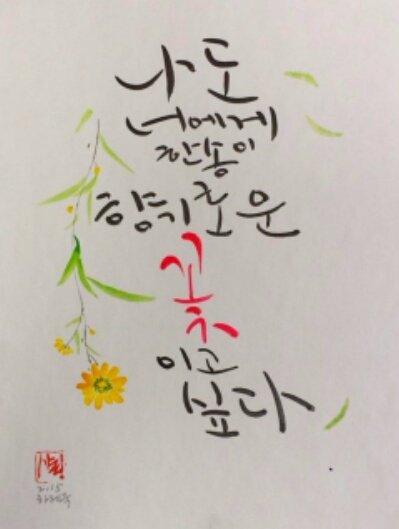 나도
너에게
한송이
향기로운
꽃
이고
싶다
2015